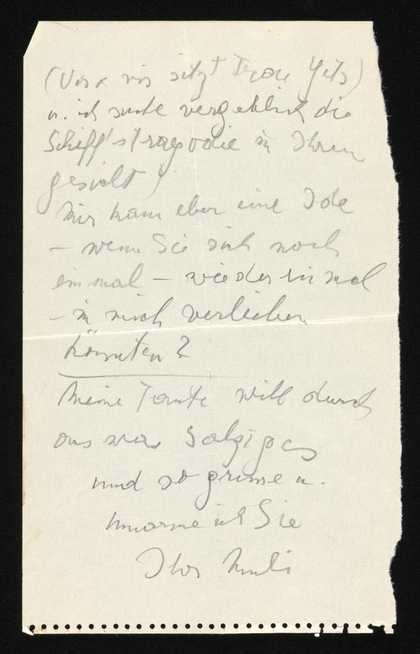 (Vis a vis sitzt Frau Yetz)
u. ich suche vergeblich die
Schiff'stragödie in Ihrem
Gesicht)
Mir kam eben eine Idee
– wenn Sie sich noch
einmal – wieder einmal
– in mich verlieben
könnten?
Meine Tante will durch
aus
und so grüsse u.
umarme ich Sie
Ihr